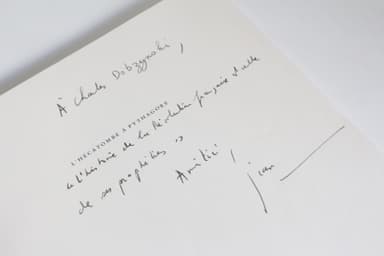 À Charles Dobzynski,
L'HÉCATOMBE À PYTHAGORE
« L'histoire de la Révolution française et celle
de ses prophéties »
Amitié,